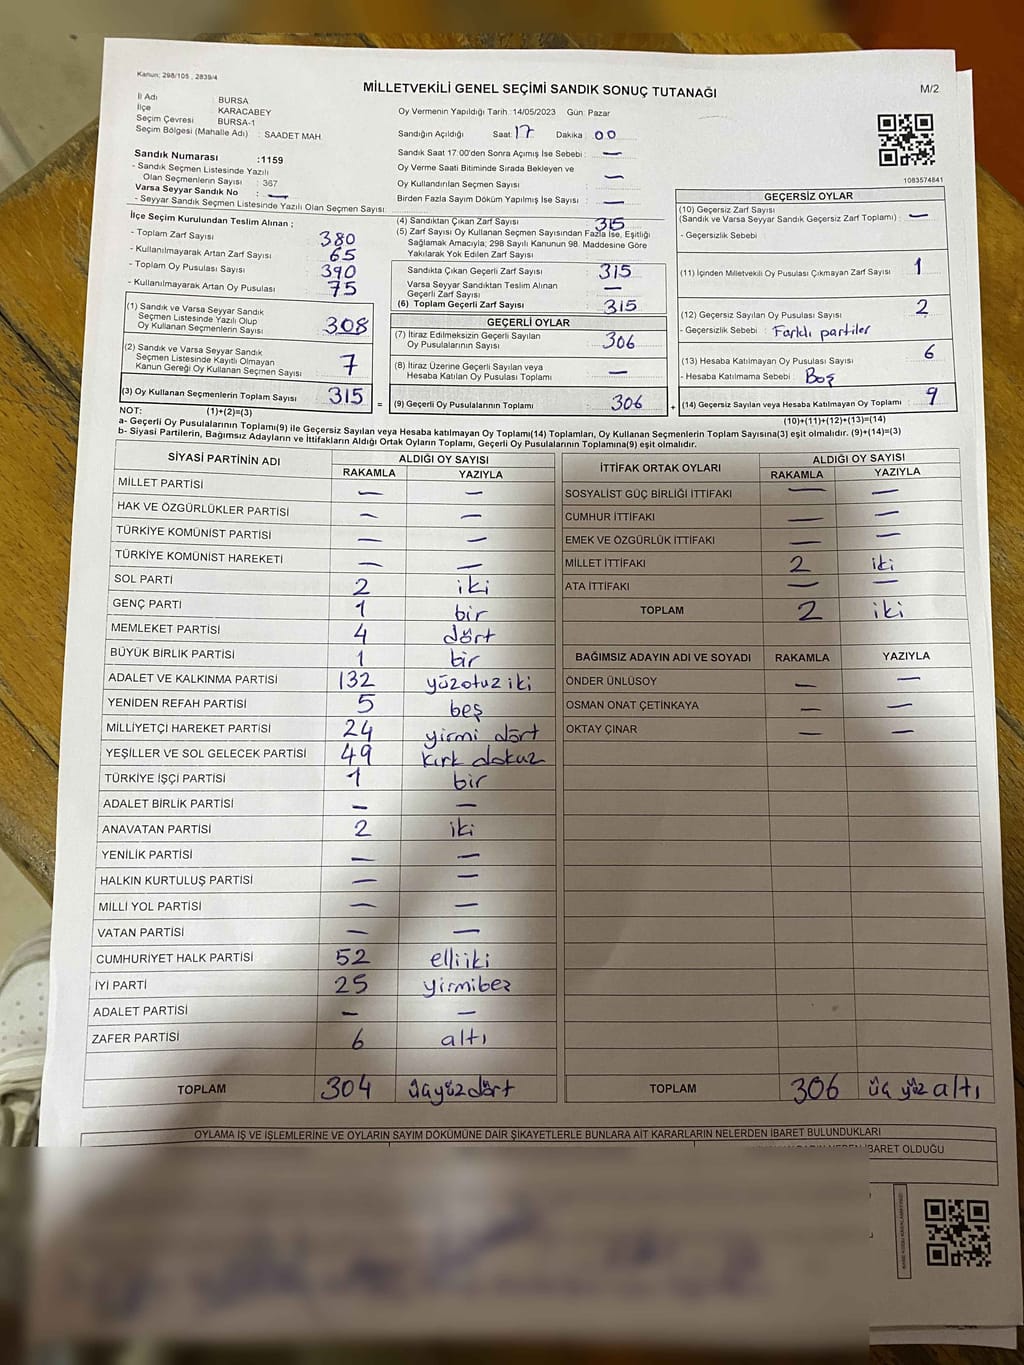 Kanun; 298/105 , 2839/4
MİLLETVEKİLİ GENEL SEÇİMİ SANDIK SONUÇ TUTANAĞI
M/2
İl Adı : BURSA
İlçe : KARACABEY
Seçim Çevresi : BURSA-1
Seçim Bölgesi (Mahalle Adı) : SAADET MAH.
Sandık Numarası :1159
- Sandık Seçmen Listesinde Yazılı
Olan Seçmenlerin Sayısı : 367
Varsa Seyyar Sandık No : —
- Seyyar Sandık Seçmen Listesinde Yazılı Olan Seçmen Sayısı:
İlçe Seçim Kurulundan Teslim Alınan ;
- Toplam Zarf Sayısı : 380
- Kullanılmayarak Artan Zarf Sayısı : 65
- Toplam Oy Pusulası Sayısı : 390
- Kullanılmayarak Artan Oy Pusulası : 75
(1) Sandık ve Varsa Seyyar Sandık
Seçmen Listesinde Yazılı Olup
Oy Kullanan Seçmenlerin Sayısı : 308
(2) Sandık ve Varsa Seyyar Sandık
Seçmen Listesinde Kayıtlı Olmayan
Kanun Gereği Oy Kullanan Seçmen Sayısı : 7
(3) Oy Kullanan Seçmenlerin Toplam Sayısı : 315 =
Oy Vermenin Yapıldığı Tarih :14/05/2023 Gün: Pazar
Sandığın Açıldığı Saat: 17 Dakika : 00
Sandık Saat 17:00'den Sonra Açımış İse Sebebi : —
Oy Verme Saati Bitiminde Sırada Bekleyen ve
Oy Kullandırılan Seçmen Sayısı : —
Birden Fazla Sayım Döküm Yapılmış İse Sayısı : —
(4) Sandıktan Çıkan Zarf Sayısı : 315
(5) Zarf Sayısı Oy Kullanan Seçmen Sayısından Fazla İse, Eşitliği
Sağlamak Amacıyla; 298 Sayılı Kanunun 98. Maddesine Göre
Yakılarak Yok Edilen Zarf Sayısı
Sandıkta Çıkan Geçerli Zarf Sayısı : 315
Varsa Seyyar Sandıktan Teslim Alınan
Geçerli Zarf Sayısı : —
(6) Toplam Geçerli Zarf Sayısı : 315
GEÇERLİ OYLAR
(7) İtiraz Edilmeksizin Geçerli Sayılan
Oy Pusulalarının Sayısı : 306
(8) İtiraz Üzerine Geçerli Sayılan veya
Hesaba Katılan Oy Pusulası Toplamı : —
(9) Geçerli Oy Pusulalarının Toplamı : 306 +
1083574841
GEÇERSİZ OYLAR
(10) Geçersiz Zarf Sayısı
(Sandık ve Varsa Seyyar Sandık Geçersiz Zarf Toplamı) : —
- Geçersizlik Sebebi :
(11) İçinden Milletvekili Oy Pusulası Çıkmayan Zarf Sayısı : 1
(12) Geçersiz Sayılan Oy Pusulası Sayısı : 2
- Geçersizlik Sebebi : Farklı partiler
(13) Hesaba Katılmayan Oy Pusulası Sayısı : 6
- Hesaba Katılmama Sebebi : Boş
(14) Geçersiz Sayılan veya Hesaba Katılmayan Oy Toplamı : 9
NOT: (1)+(2)=(3) (10)+(11)+(12)+(13)=(14)
a- Geçerli Oy Pusulalarının Toplamı(9) ile Geçersiz Sayılan veya Hesaba katılmayan Oy Toplamı(14) Toplamları, Oy Kullanan Seçmenlerin Toplam Sayısına(3) eşit olmalıdır. (9)+(14)=(3)
b- Siyasi Partilerin, Bağımsız Adayların ve İttifakların Aldığı Ortak Oyların Toplamı, Geçerli Oy Pusulalarının Toplamına(9) eşit olmalıdır.
SİYASİ PARTİNİN ADI ALDIĞI OY SAYISI
RAKAMLA YAZIYLA
MİLLET PARTİSİ — —
HAK VE ÖZGÜRLÜKLER PARTİSİ — —
TÜRKİYE KOMÜNİST PARTİSİ — —
TÜRKİYE KOMÜNİST HAREKETİ — —
SOL PARTİ 2 iki
GENÇ PARTİ 1 bir
MEMLEKET PARTİSİ 4 dört
BÜYÜK BİRLİK PARTİSİ 1 bir
ADALET VE KALKINMA PARTİSİ 132 yüzotuz iki
YENİDEN REFAH PARTİSİ 5 beş
MİLLİYETÇİ HAREKET PARTİSİ 24 yirmi dört
YEŞİLLER VE SOL GELECEK PARTİSİ 49 kırk dokuz
TÜRKİYE İŞÇİ PARTİSİ 1 bir
ADALET BİRLİK PARTİSİ — —
ANAVATAN PARTİSİ 2 iki
YENİLİK PARTİSİ — —
HALKIN KURTULUŞ PARTİSİ — —
MİLLİ YOL PARTİSİ — —
VATAN PARTİSİ — —
CUMHURİYET HALK PARTİSİ 52 elliiki
İYİ PARTİ 25 yirmibeş
ADALET PARTİSİ — —
ZAFER PARTİSİ 6 altı
TOPLAM 304 üçyüzdört
İTTİFAK ORTAK OYLARI ALDIĞI OY SAYISI
RAKAMLA YAZIYLA
SOSYALİST GÜÇ BİRLİĞİ İTTİFAKI — —
CUMHUR İTTİFAKI — —
EMEK VE ÖZGÜRLÜK İTTİFAKI — —
MİLLET İTTİFAKI 2 iki
ATA İTTİFAKI — —
TOPLAM 2 iki
BAĞIMSIZ ADAYIN ADI VE SOYADI RAKAMLA YAZIYLA
ÖNDER ÜNLÜSOY — —
OSMAN ONAT ÇETİNKAYA — —
OKTAY ÇINAR — —
TOPLAM 306 üç yüz altı
OYLAMA İŞ VE İŞLEMLERİNE VE OYLARIN SAYIM DÖKÜMÜNE DAİR ŞİKAYETLERLE BUNLARA AİT KARARLARIN NELERDEN İBARET BULUNDUKLARI
İBARET OLDUĞU